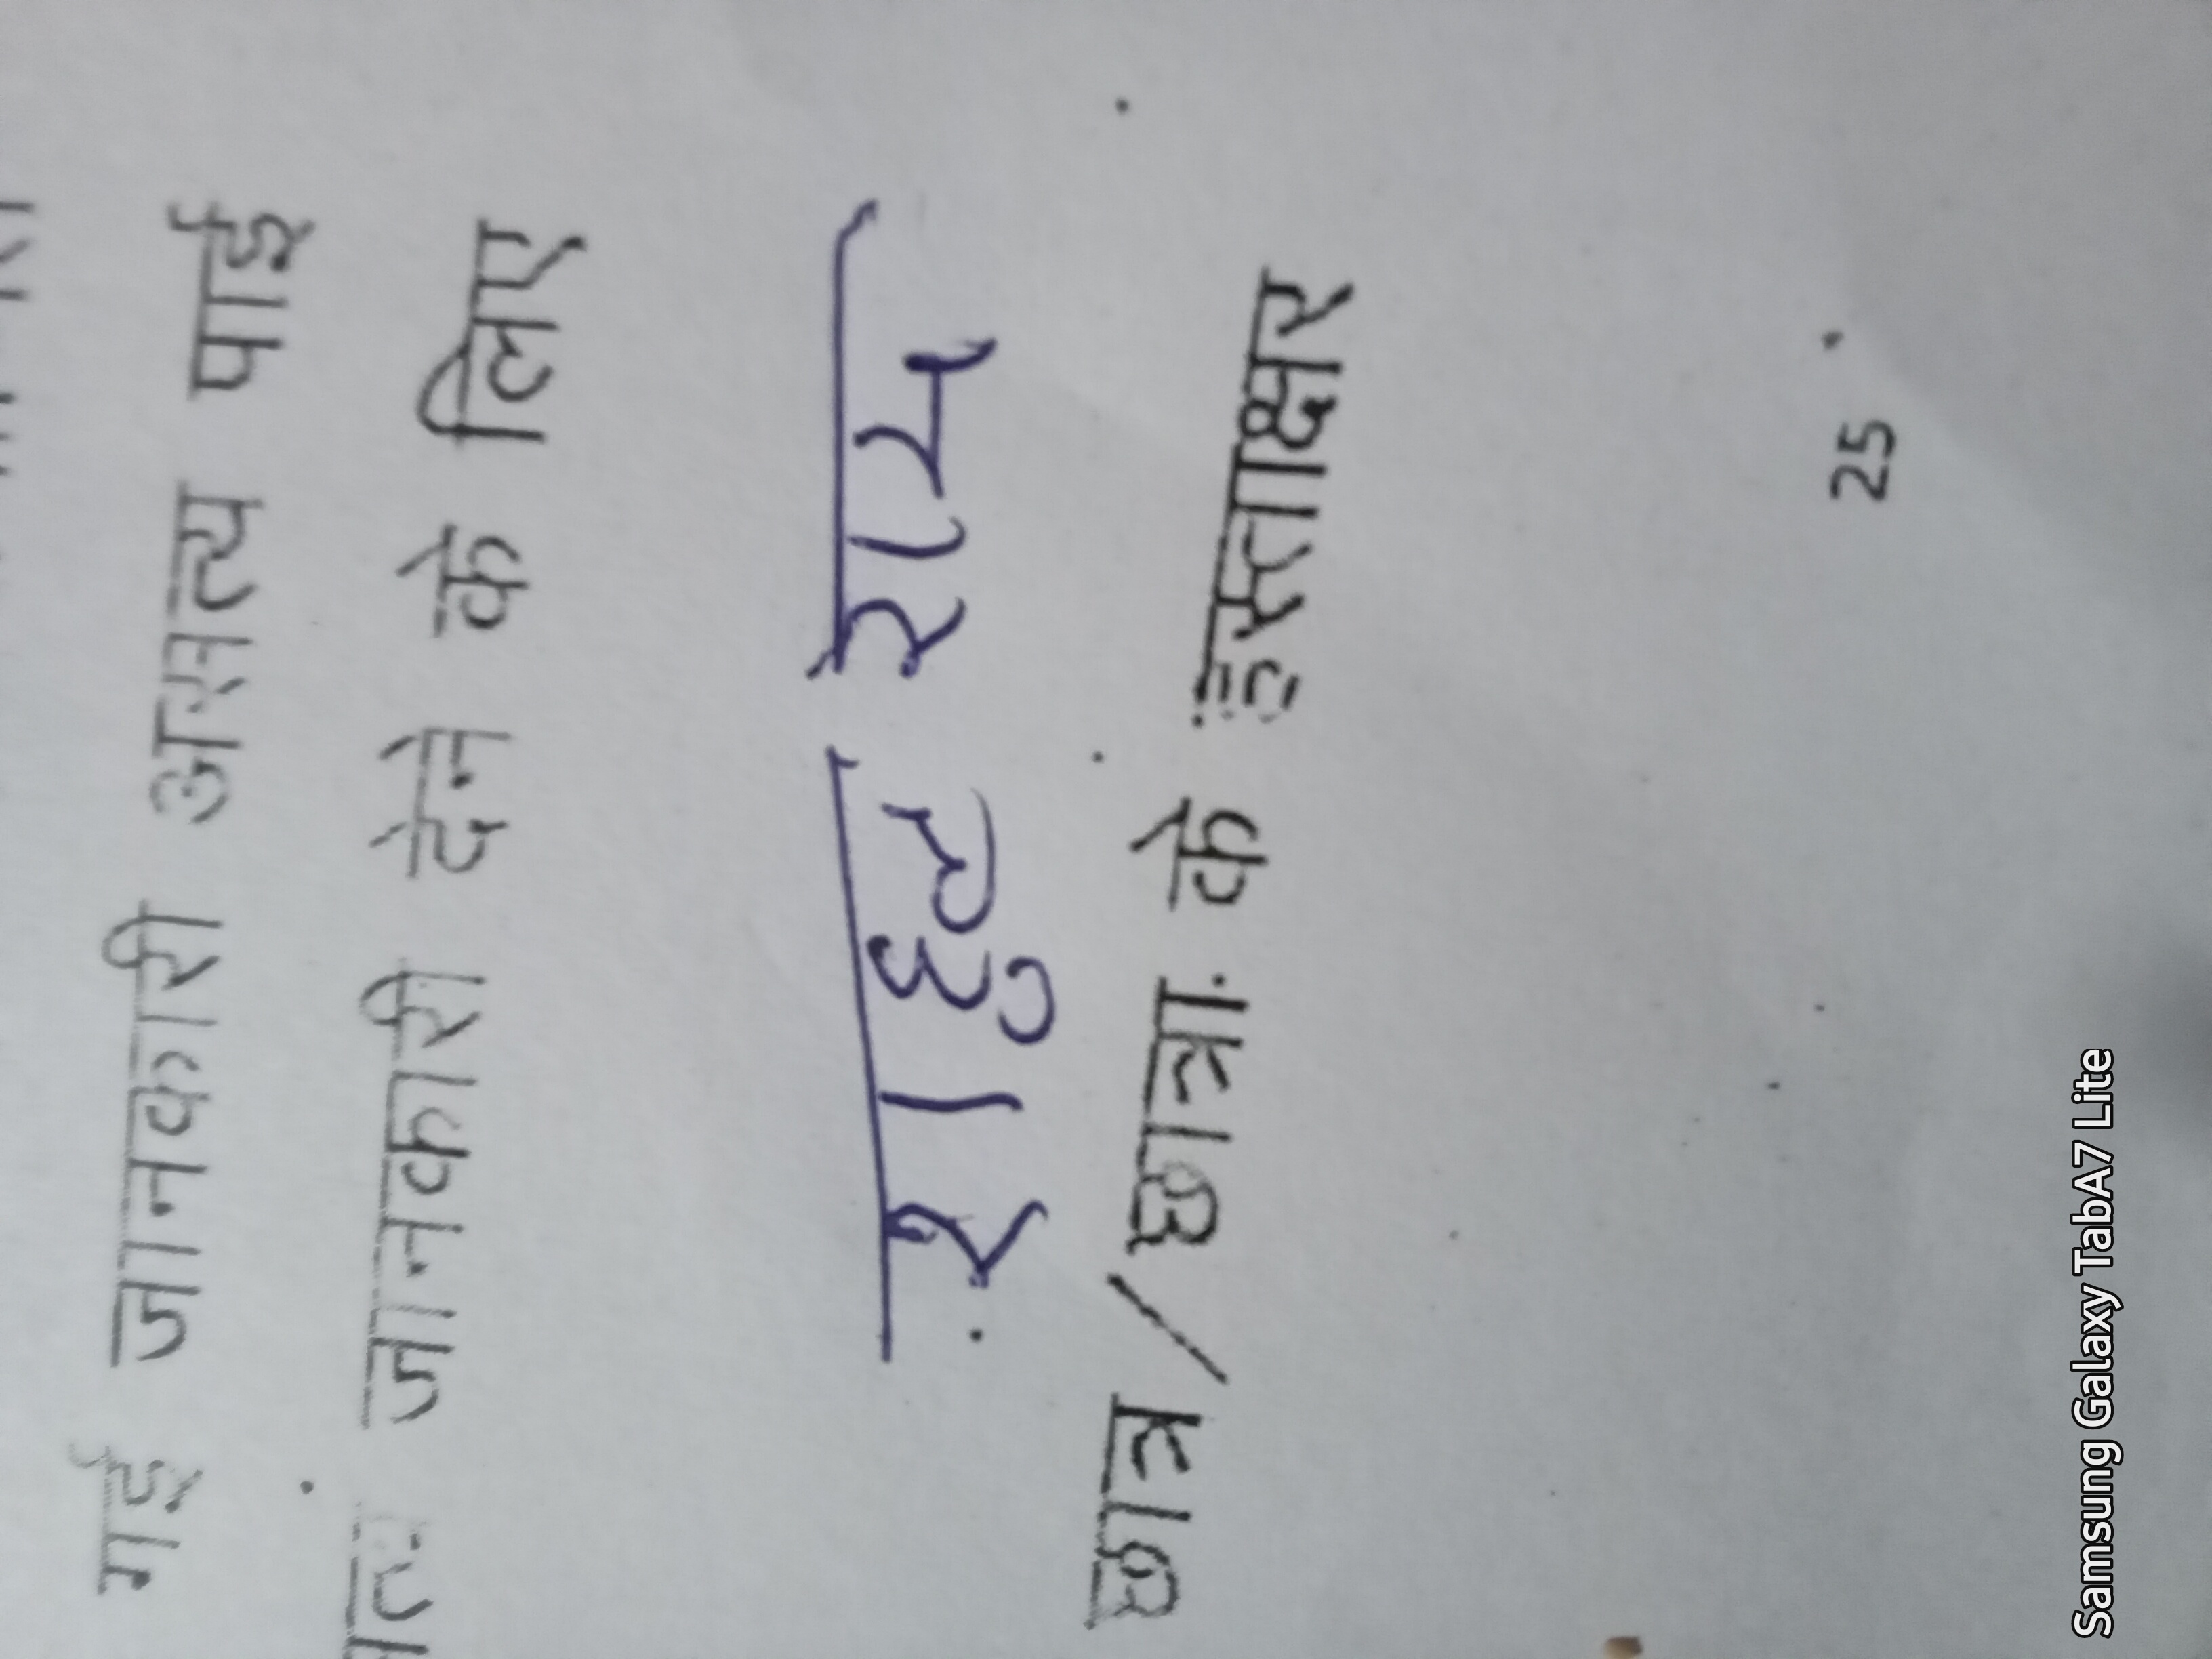 गई जानकारी असत्य पाई
जानकारी देने के लिए
छात्र/छात्रा के हस्ताक्षर
25
Samsung Galaxy TabA7 Lite